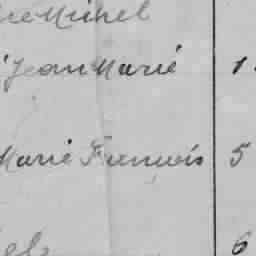 Michel
Jean Marie 1
Marie Francois 5
6